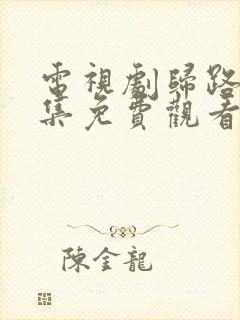 電視劇歸路
集免費觀看
陳金龍